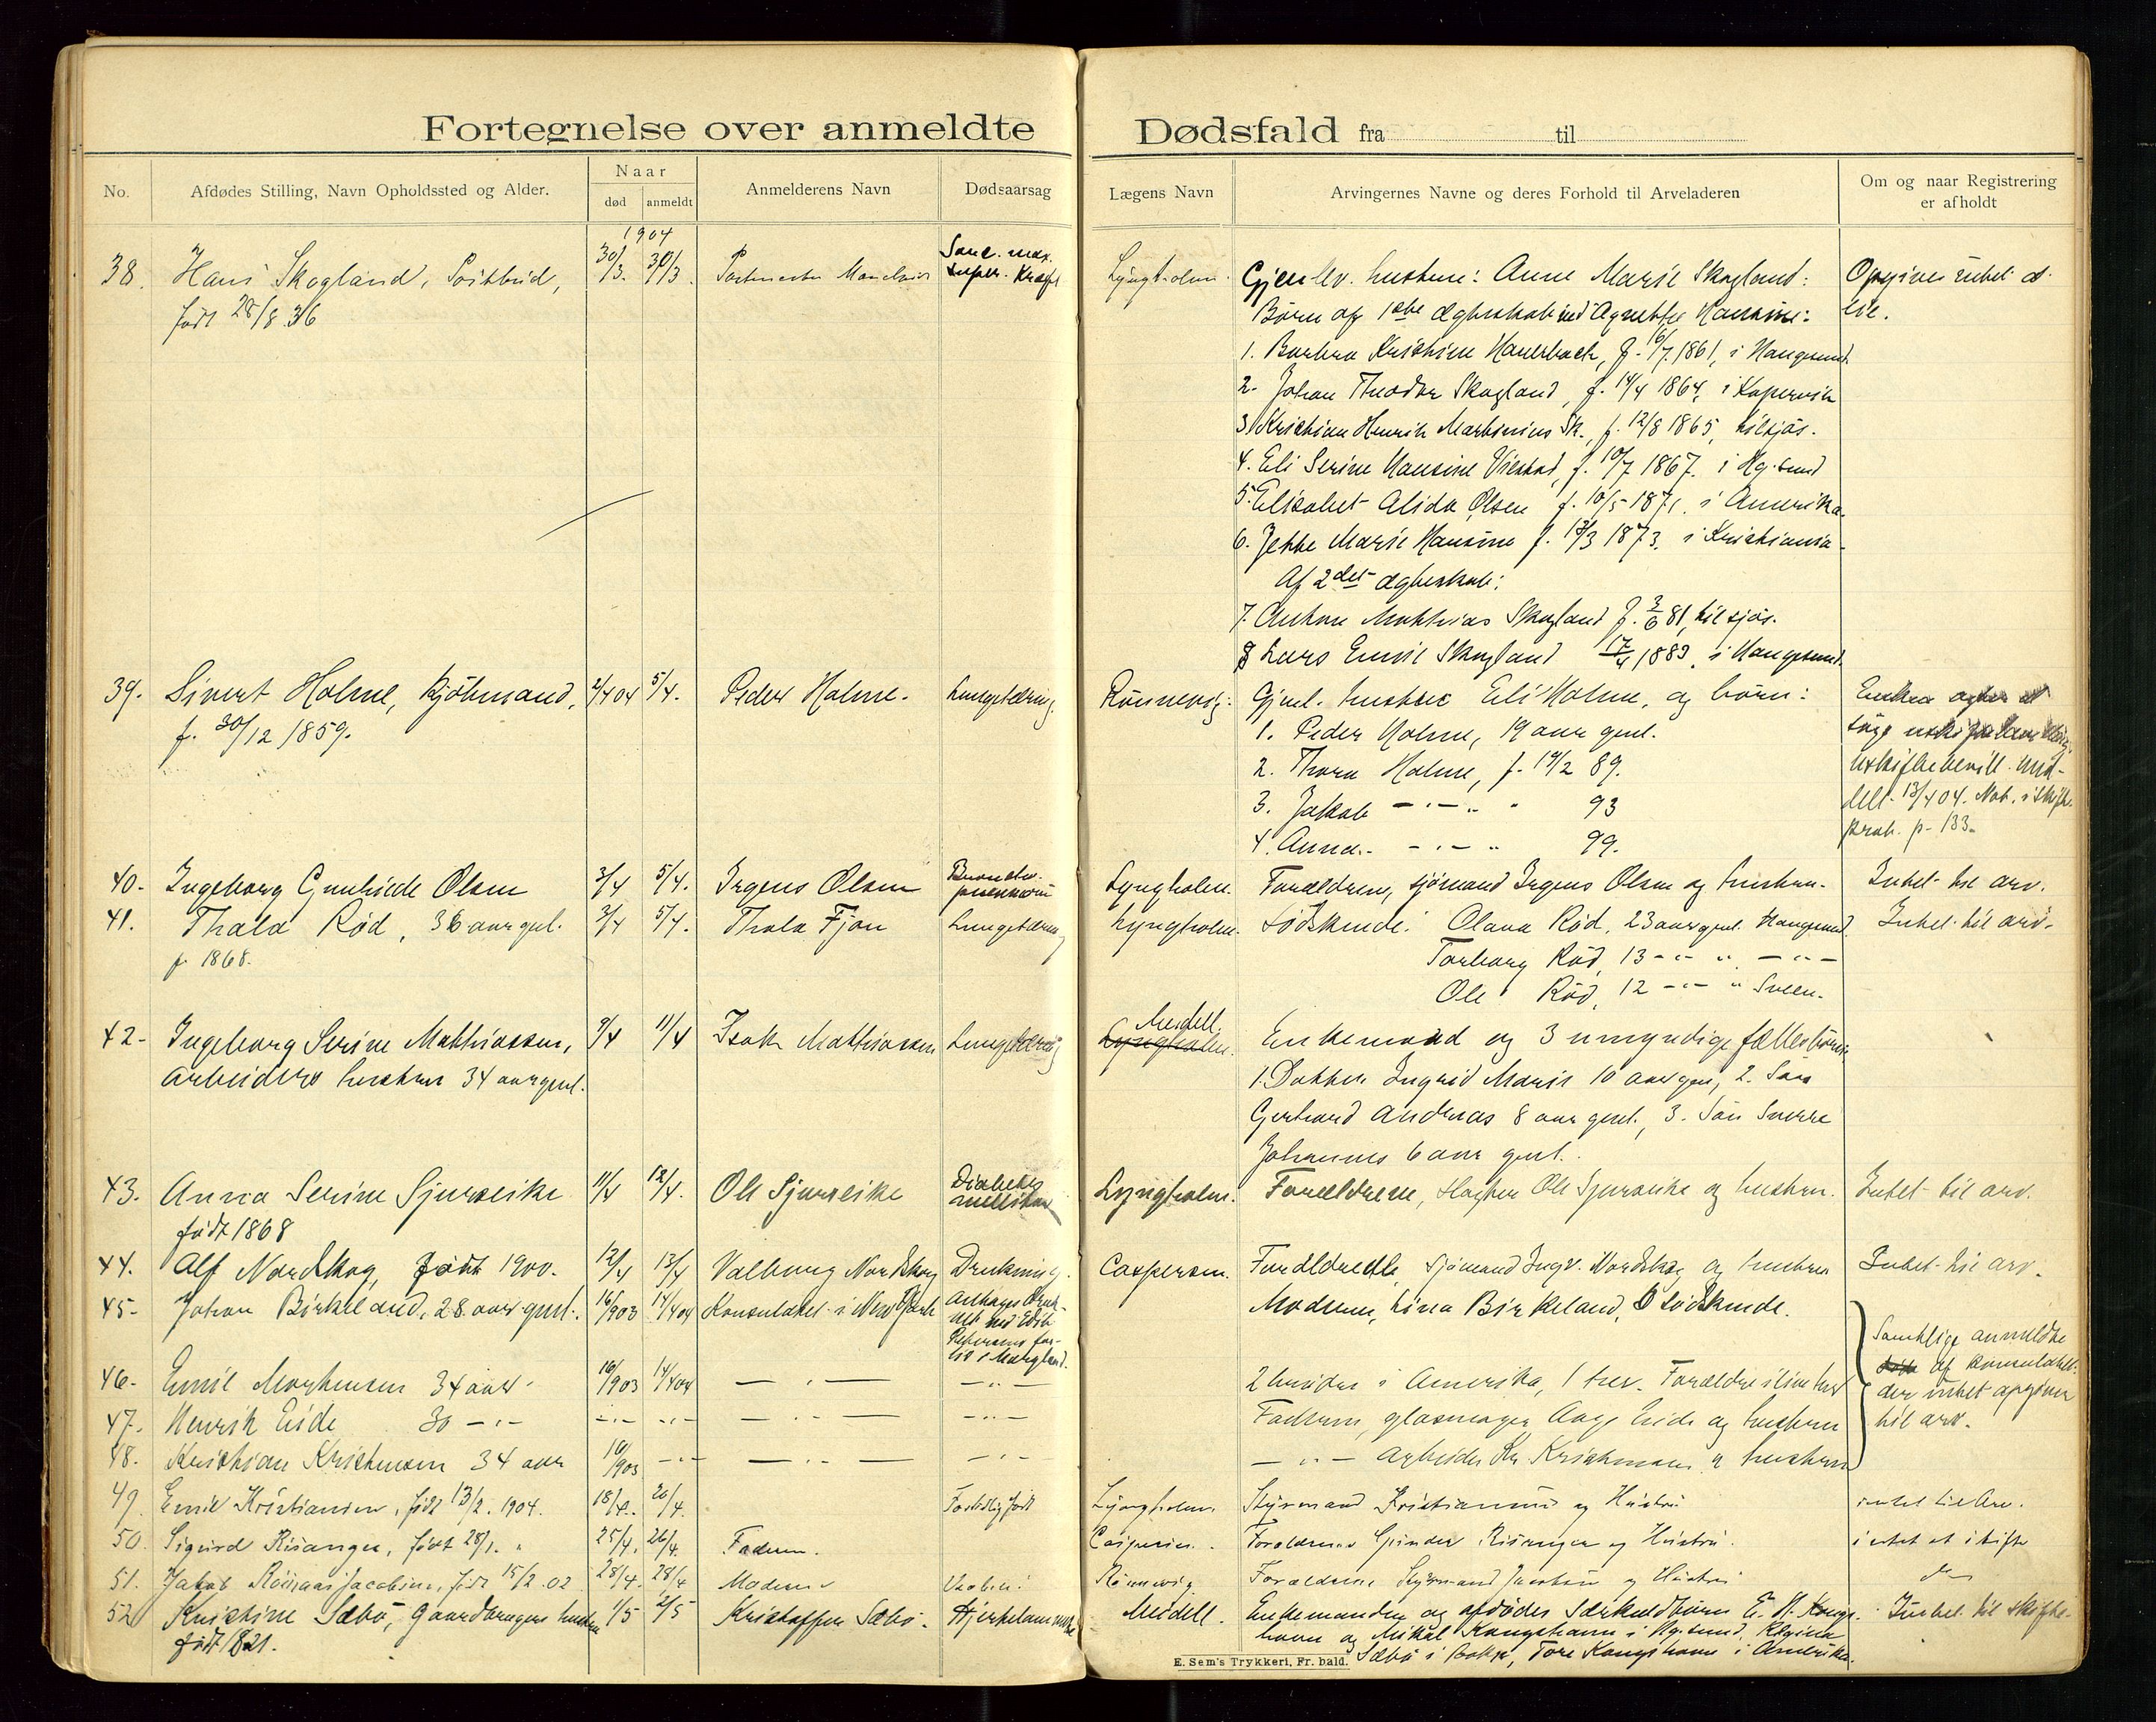 Fortegnelse over anmeldte Dødsfald fra til
No. Afdødes Stilling, Navn Opholdssted og Alder. Naar død anmeldt Anmelderens Navn Dødsaarsag Lægens Navn Arvingernes Navne og deres Forhold til Arveladeren Om og naar Registrering er afholdt
1904
38. Hans Skogland, Postbud, 30/3. 30/3. Postmester Lyngholm. Gjenlev. hustru: Anne Marie Skogland: Opgives intet at
født 28/8 36 Børn af 1ste ægteskab med Agnethe Hansine:
1. Barbra Kristine Hauerbach, f. 16/7 1861, i Haugesund.
2. Johan Theodor Skogland, f. 14/4 1864, i Kopervik
3. Kristian Henrik Martinius Sk., f. 12/8 1865, tilsjøs.
4. Eli Serine Hansine Viestad, f. 10/7 1867. i Hg.sund
5. Elisabet Alida Olsen f. 10/5 1871. i Amerika.
6. Jette Marie Hansine f. 13/3 1873. i Kristiania.
Af 2det ægteskab:
7. Anton Mathias Skogland f. 3/6 81, tilsjøs.
8 Lars Emil Skogland 17/4 1883, i Haugesund.
39. Sivert Holme, kjøbmand, 2/4 04 5/4. Peder Holme. Lungetæring Rønnevig. Gjenl. hustru Eli Holme, og børn:
f. 30/12 1859. 1. Peder Holme, 19 aar gml.
2. Thora Holme, f. 19/2 89.
3. Jakob — " — " " 93 13/4 04. Not. i skifte-
4. Anna. — " — " 99. prot. p. 133.
40. Ingeborg Gunhilde Olsen 3/4 5/4. Irgens Olsen Lyngholm. Forældrene, sjømand Irgens Olsen og hustru. Intet til arv.
41. Thala Rød, 36 aar gml. 3/4 5/4. Thala Fjon Lungetæring Lyngholm. Sødskende: Olava Rød, 23 aar gml. Haugesund. Intet til arv.
f. 1868. Torborg Rød, 13 - " - " - " -
Ole Rød, 12 - " - " Sveen.
42. Ingeborg Serine Mathiassen, 9/4 11/4 Isak Mathiassen Lungetæring Meidell. Enkemand og 3 umyndige fællesbørn:
Arbeiders hustru 34 aar gml. 1. Datter Ingrid Marie 10 aar gml, 2. Søn
Gerhard Andreas 8 aar gml., 3. Søn Sverre
Johannes 6 aar gml.
43. Anna Serine Sjurseike 11/4 12/4. Ole Sjurseike Diabetes mellitus Lyngholm. Forældrene, Ole Sjurseike og hustru. Intet til arv.
født 1868
44. Alf Nordskog, født 1900. 12/4 13/4 Valborg Nordskog Drukning. Caspersen. Forældrene, sjømand Ingv. Nordskog og hustru Intet til arv.
45. Johan Birkeland, 28 aar gml. 16/ 903 14/4 04 Konsulatet i New York Moderen, Lina Birkeland, 6 sødskende.
Samtlige anmeldte
46. Emil Mortensen 34 aar. 16/ 903 14/4 04 — " — — " — 2 brødre i Amerika, 1 her. Forældre ilive her af konsulatet.
der intet opgiver
47. Henrik Eide 30 — " — — " — — " — — " — — " — Faderen, glasmager Aage Eide og hustru til arv.
48. Kristian Kristensen 34 aar 16/ 903 — " — — " — — " — — " — Arbeider Kr. Kristensen & hustru
49. Emil Kristiansen, født 13/2. 1904. 18/4. 20/4. For tidlig født Lyngholm. Styrmand Kristiansen og Hustru intet til Arv.
50. Sigurd Risanger, født 28/1. " 25/4. 26/4. Faderen. Caspersen. Forældrene Risanger og Hustru. intet at skifte
51. Jakob Jacobsen, født 15/2 02 28/4. 28/4 Moderen Rønnevig. Forældrene Styrmand Jacobsen og Hustru do
52 Kristine Sæbø, gaardbrugers hustru 1/5 2/5 Kristoffer Sæbø. Hjertelammelse Meidell. Enkemanden og afdødes særkuldbørn E. H. Kongs- Intet til skifte.
født 1821. havn og Mikal Kongshavn i Hg.sund, Regina
Sæbø i Bokn, Tore Kongshavn i Amerika.
E. Sem's Trykkeri, Fr. hald.